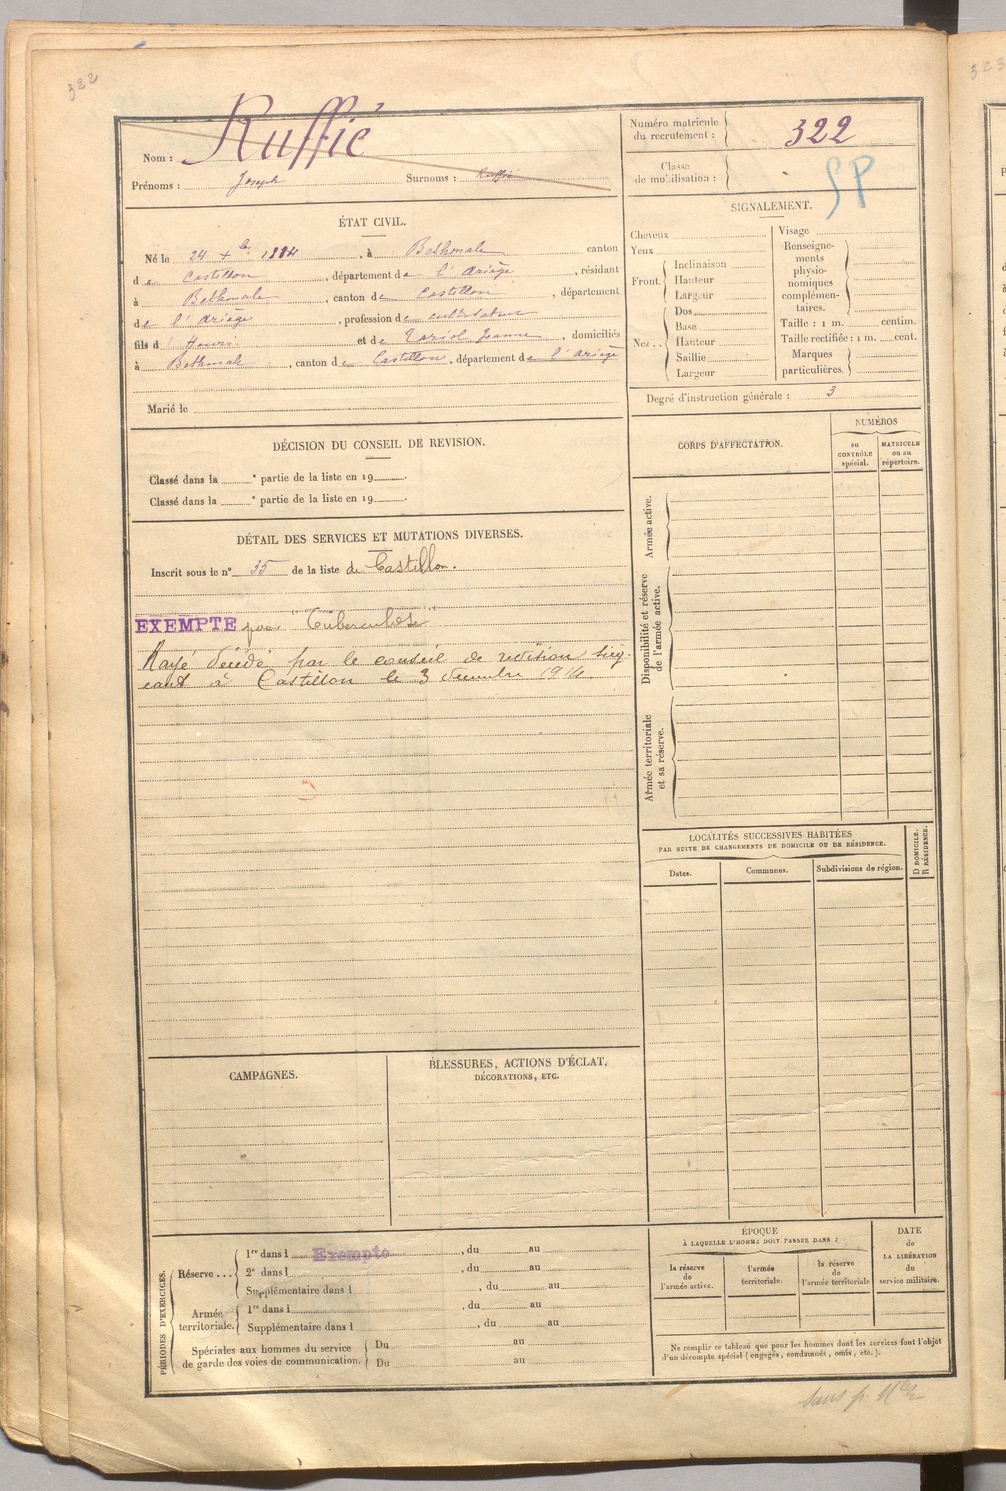 322
Ruffié
Nom :
Prénoms : Joseph Surnoms : Ruffié
Numéro matricule du recrutement : 322
Classe de mobilisation :
SP
ÉTAT CIVIL.
Né le 24 Xbre 1884, à Bethmale canton
de Castillon, département de l'Ariège, résidant
à Bethmale, canton de Castillon, département
de l'Ariège, profession de cultivateur
fils d' Henri et de Tariol Jeanne, domiciliés
à Bethmale, canton de Castillon, département de l'Ariège
Marié le
SIGNALEMENT.
Cheveux
Yeux
Front. Inclinaison
Hauteur
Largeur
Nez.. Dos
Base
Hauteur
Saillie
Largeur
Visage
Renseignements physionomiques complémentaires.
Taille : 1 m. centim.
Taille rectifiée : 1 m. cent.
Marques particulières.
Degré d'instruction générale : 3
DÉCISION DU CONSEIL DE REVISION.
Classé dans la e partie de la liste en 19 .
Classé dans la e partie de la liste en 19 .
CORPS D'AFFECTATION.
NUMÉROS
au CONTRÔLE spécial.
MATRICULE ou au répertoire.
Armée active.
Disponibilité et réserve de l'armée active.
Armée territoriale et sa réserve.
DÉTAIL DES SERVICES ET MUTATIONS DIVERSES.
Inscrit sous le n° 35 de la liste de Castillon.
EXEMPTÉ pour "Tuberculose"
Rayé décédé par le conseil de révision siég-
eant à Castillon le 3 décembre 1914.
LOCALITÉS SUCCESSIVES HABITÉES
PAR SUITE DE CHANGEMENTS DE DOMICILE OU DE RÉSIDENCE.
Dates.
Communes.
Subdivisions de région.
D DOMICILE.
R RÉSIDENCE.
CAMPAGNES.
BLESSURES, ACTIONS D'ÉCLAT,
DÉCORATIONS, ETC.
PÉRIODES D'EXERCICES.
Réserve... 1re dans l Exempté, du au
2e dans l , du au
Supplémentaire dans l , du au
Armée territoriale. 1re dans l , du au
Supplémentaire dans l , du au
Spéciales aux hommes du service
de garde des voies de communication.
Du au
Du au
ÉPOQUE
À LAQUELLE L'HOMME DOIT PASSER DANS :
la réserve de l'armée active.
l'armée territoriale.
la réserve de l'armée territoriale
DATE de LA LIBÉRATION du service militaire.
Ne remplir ce tableau que pour les hommes dont les services font l'objet
d'un décompte spécial (engagés, condamnés, omis, etc.).
323